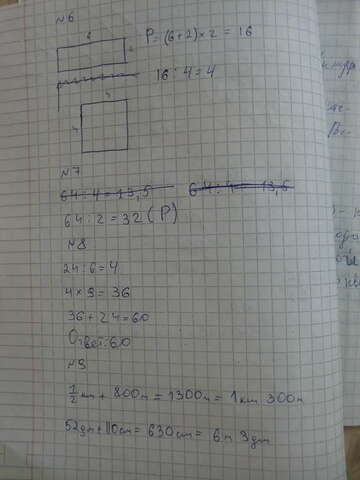 №6
6
2
P = (6+2)×2 = 16
16 : 4 = 4
4
4
№7
64 : 4 = 13,5 64 : 4 = 13,5
64 : 2 = 32 (P)
№8
24 : 6 = 4
4 × 9 = 36
36 + 24 = 60
Ответ: 60
№9
1/2 км + 800м = 1300м = 1км 300м
52дм + 110см = 630см = 6м 3дм